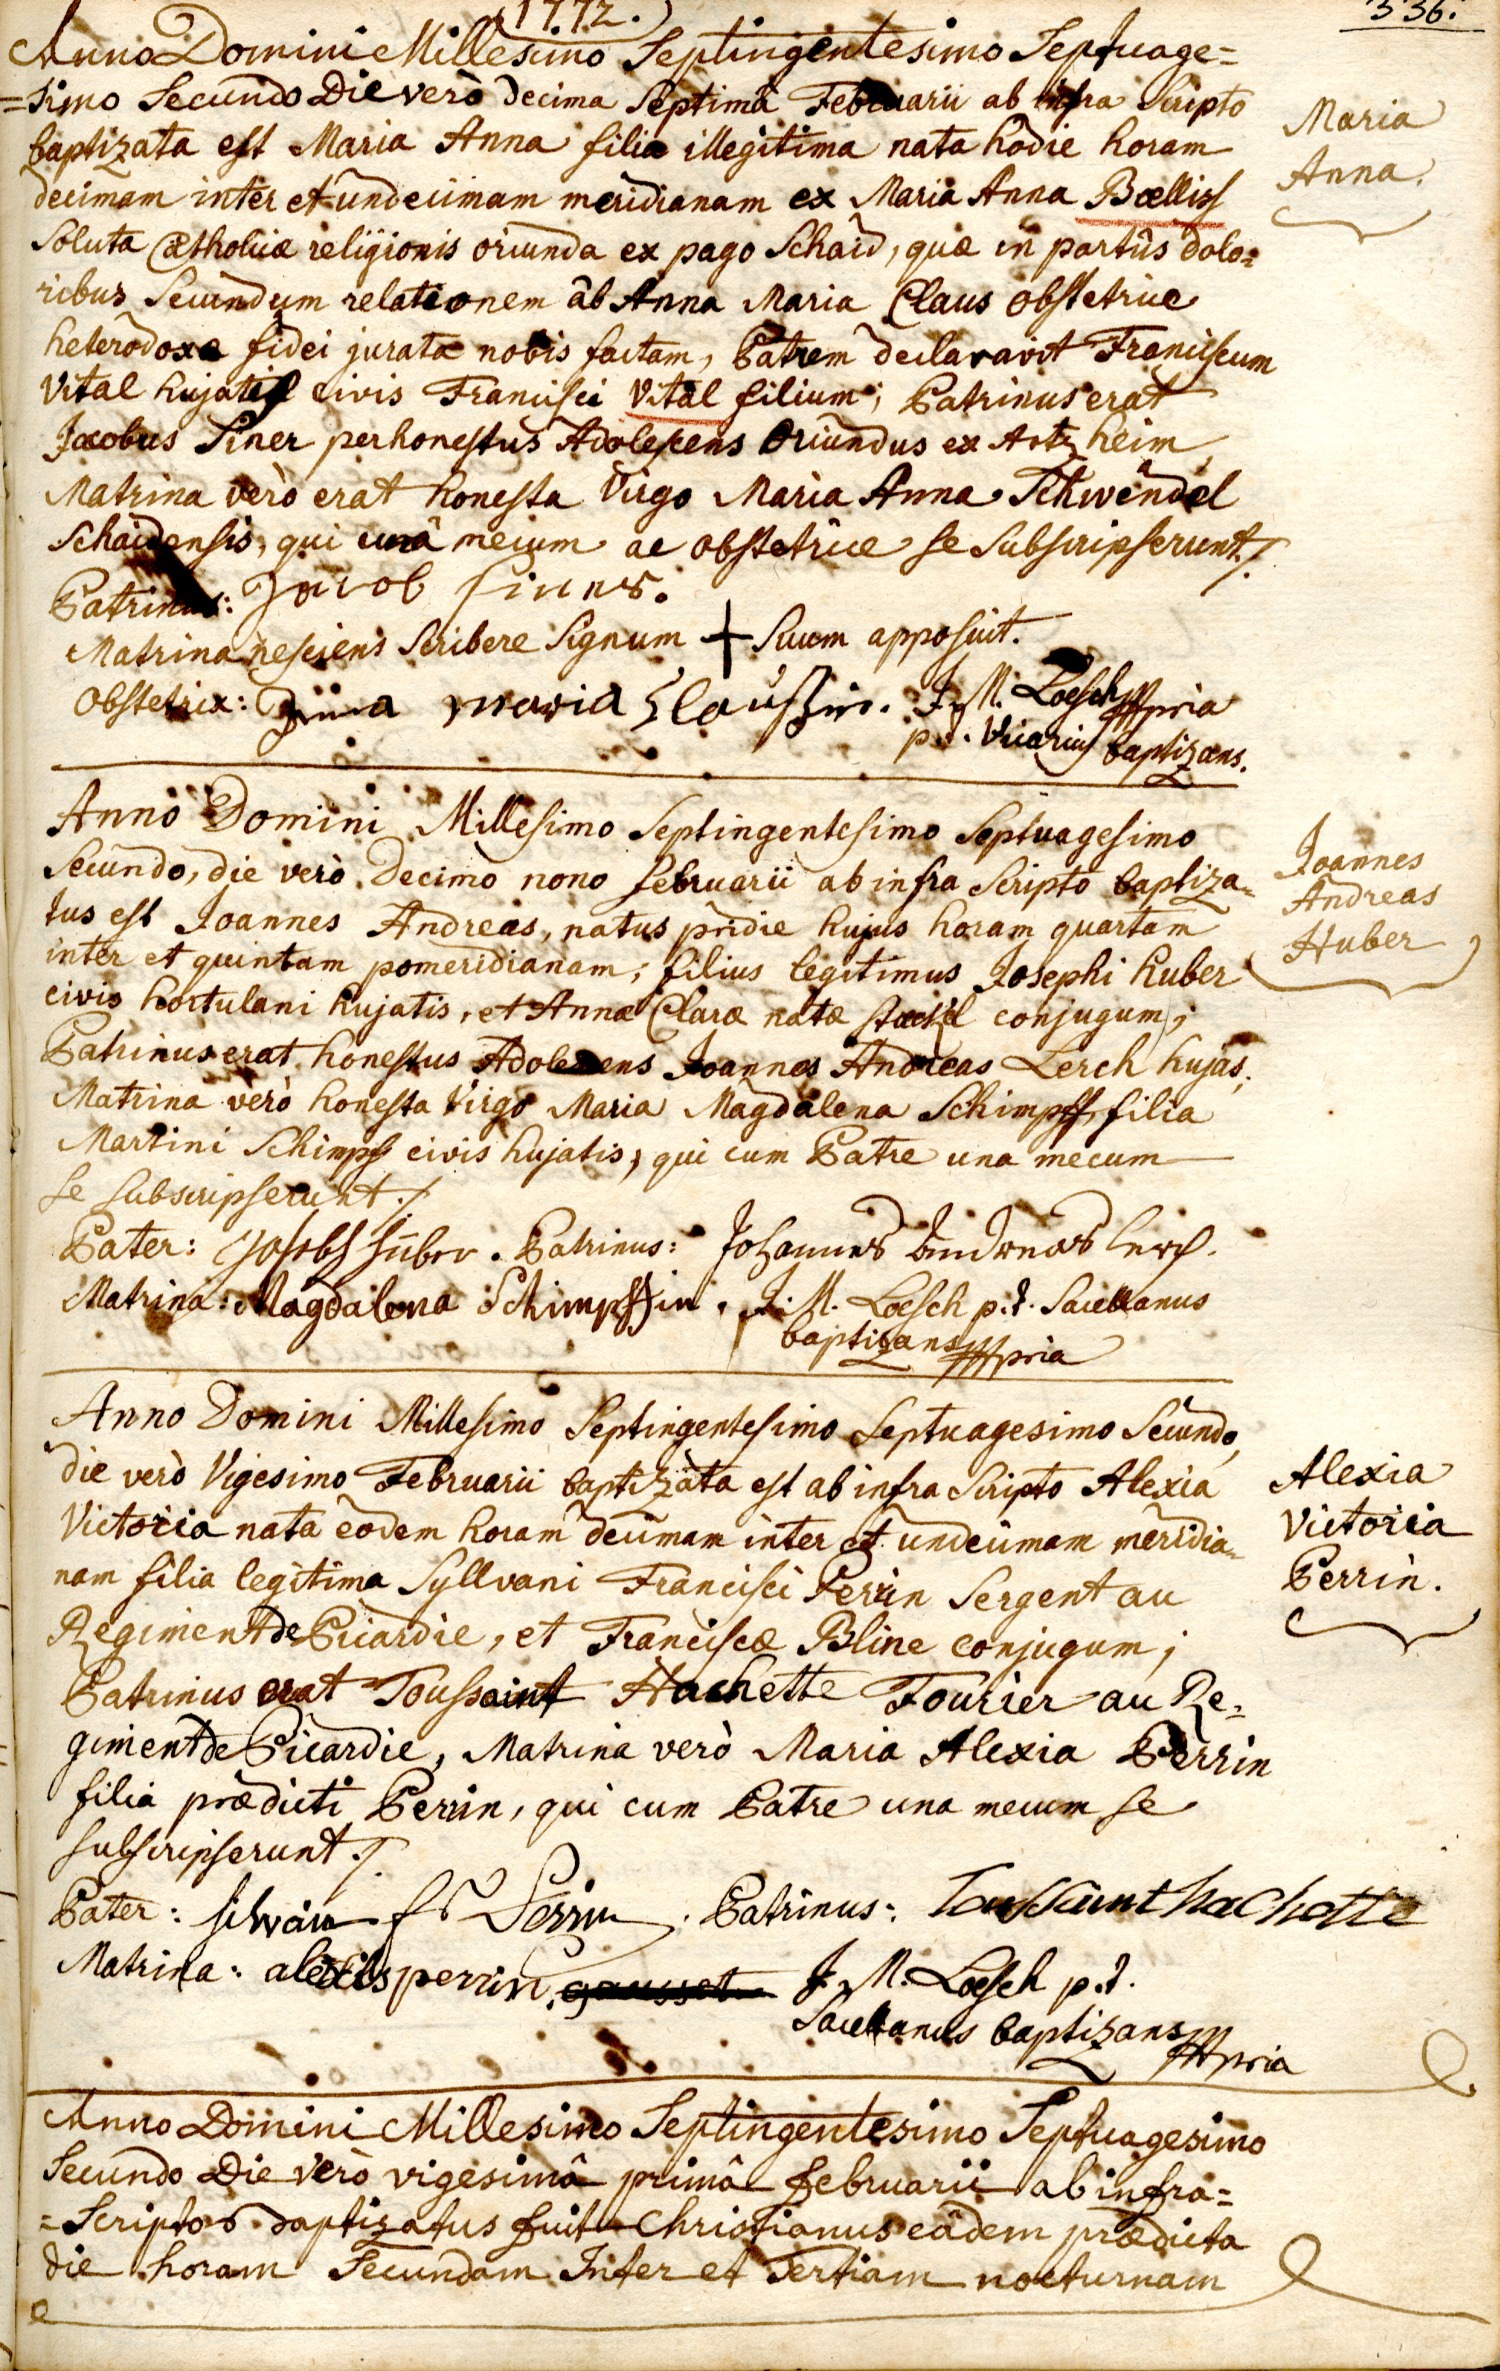 (1772.)
336.
Anno Domini Millesimo Septingentesimo Septuage=
=simo Secundo Die verò decima Septimâ Februarii ab infra Scripto
baptizata est Maria Anna filia illegitima nata hodie horam
decimam inter et undecimam meridianam ex Maria Anna Bœlliss
Soluta Catholicæ religionis oriunda ex pago Schaid, quæ in partûs dolo=
ribus Secundum relationem ab Anna Maria Claus obstetrice
heterodoxæ fidei juratæ nobis factam, Patrem declaravit Franciscum
Vital hujatis civis Francisci Vital filium; Patrinus erat
Jacobus Siner perhonestus Adolescens Oriundus ex Artzheim,
Matrina verò erat honesta Virgo Maria Anna Schwendel
Schaidensis, qui unâ mecum ac obstetrice se Subscripserunt./.
Patrinus: Jacob Siner.
Matrina nesciens Scribere Signum + Suum apposuit.
Obstetrix: Anna maria Claußin. J. M. Loesch mpria
p.t. Vicarius baptizans.
Maria
Anna.
Anno Domini Millesimo Septingentesimo Septuagesimo
Secundo, die verò Decimo nono februarii ab infra Scripto baptiza=
tus est Joannes Andreas, natus pridie hujus horam quartam
inter et quintam pomeridianam; filius legitimus Josephi Huber
civis hortulani hujatis, et Annæ Claræ natæ conjugum;
Patrinus erat honestus Adolescens Joannes Andreas Lerch hujas;
Matrina verò honesta Virgo Maria Magdalena Schimpff, filia
Martini Schimpff civis hujatis, qui cum Patre una mecum
se subscripserunt./.
Pater: Joseph Huber. Patrinus: Johannes Andreas Lerch.
Matrina: Magdalena Schimpffin. J. M. Loesch p.t. Sacellanus
baptizans mpria
Joannes
Andreas
Huber
Anno Domini Millesimo Septingentesimo Septuagesimo Secundo,
die verò Vigesimo Februarii baptizata est ab infra Scripto Alexia
Victoria nata eodem horam decimam inter et undecimam meridia=
nam filia legitima Syllvani Francisci Perrin Sergent au
Regiment de Picardie, et Franciscæ Bline conjugum;
Patrinus erat Toussaint Hachette Fourier au Re=
giment de Picardie, Matrina verò Maria Alexia Perrin
filia prædicti Perrin, qui cum Patre una mecum se
subscripserunt./.
Pater: silvain fs Perrin. Patrinus: Toussaint hachette
Matrina: alexis perrin. J. M. Loesch p.t.
Sacellanus baptizans mpria
Alexia
Victoria
Perrin.
Anno Domini Millesimo Septingentesimo Septuagesimo
Secundo Die verò vigesimâ primâ februarii ab infra=
=Scripto baptizatus fuit Christianus eâdem prædicta
die horam Secundam Inter et Tertiam nocturnam